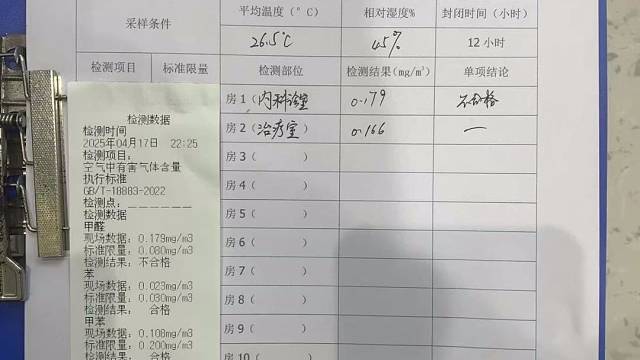 采样条件 平均温度(°C) 相对湿度% 封闭时间(小时)
26.5℃ 45% 12小时
检测项目 标准限量 检测部位 检测结果(mg/m³) 单项结论
房1(内科诊室) 0.179 不合格
房2(治疗室) 0.166 一
房3( )
房4( )
房5( )
房6( )
房7( )
房8( )
房9( )
房10(
检测数据
检测时间
2025年04月17日 22:25
检测项目:
空气中有害气体含量
执行标准
GB/T-18883-2022
检测点:______
检测数据
甲醛
现场数据: 0.179mg/m3
标准限量: 0.080mg/m3
检测结果: 不合格
苯
现场数据: 0.023mg/m3
标准限量: 0.030mg/m3
检测结果: 合格
甲苯
现场数据: 0.108mg/m3
标准限量: 0.200mg/m3
检测结果: 合格